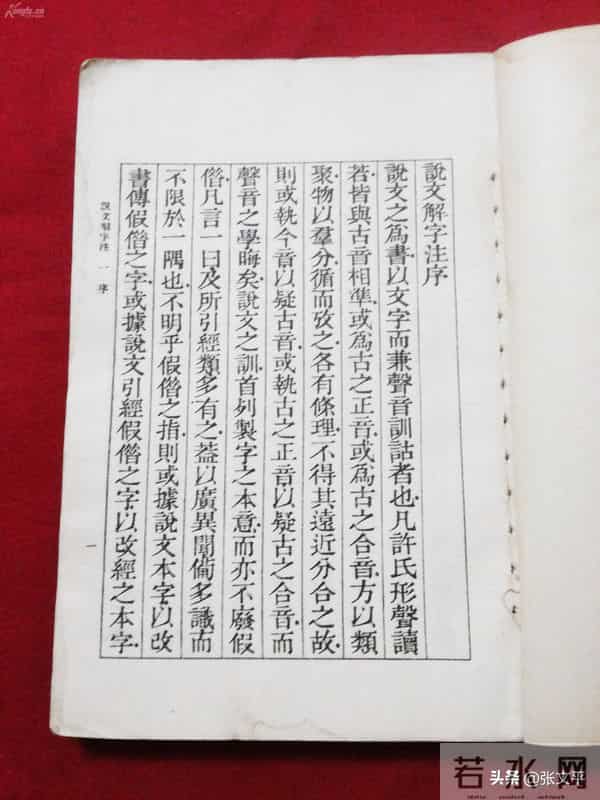 說文解字注序
說文之爲書以文字而兼聲音訓詁者也凡許氏形聲讀
若皆與古音相準或爲古之正音或爲古之合音方以類
聚物以羣分循而攷之各有條理不得其遠近分合之故
則或執今音以疑古音或執古之正音以疑古之合音而
聲音之學晦矣說文之訓首列製字之本意而亦不廢假
僭凡言一曰及所引經類多有之葢以廣異聞僃多識而
不限於一隅也不明乎假僭之指則或據說文本字以改
書傳假僭之字或據說文引經假僭之字以改經之本字
說文解字注 一 序
一
Kongfz.cn
若水网
头条 @张文平